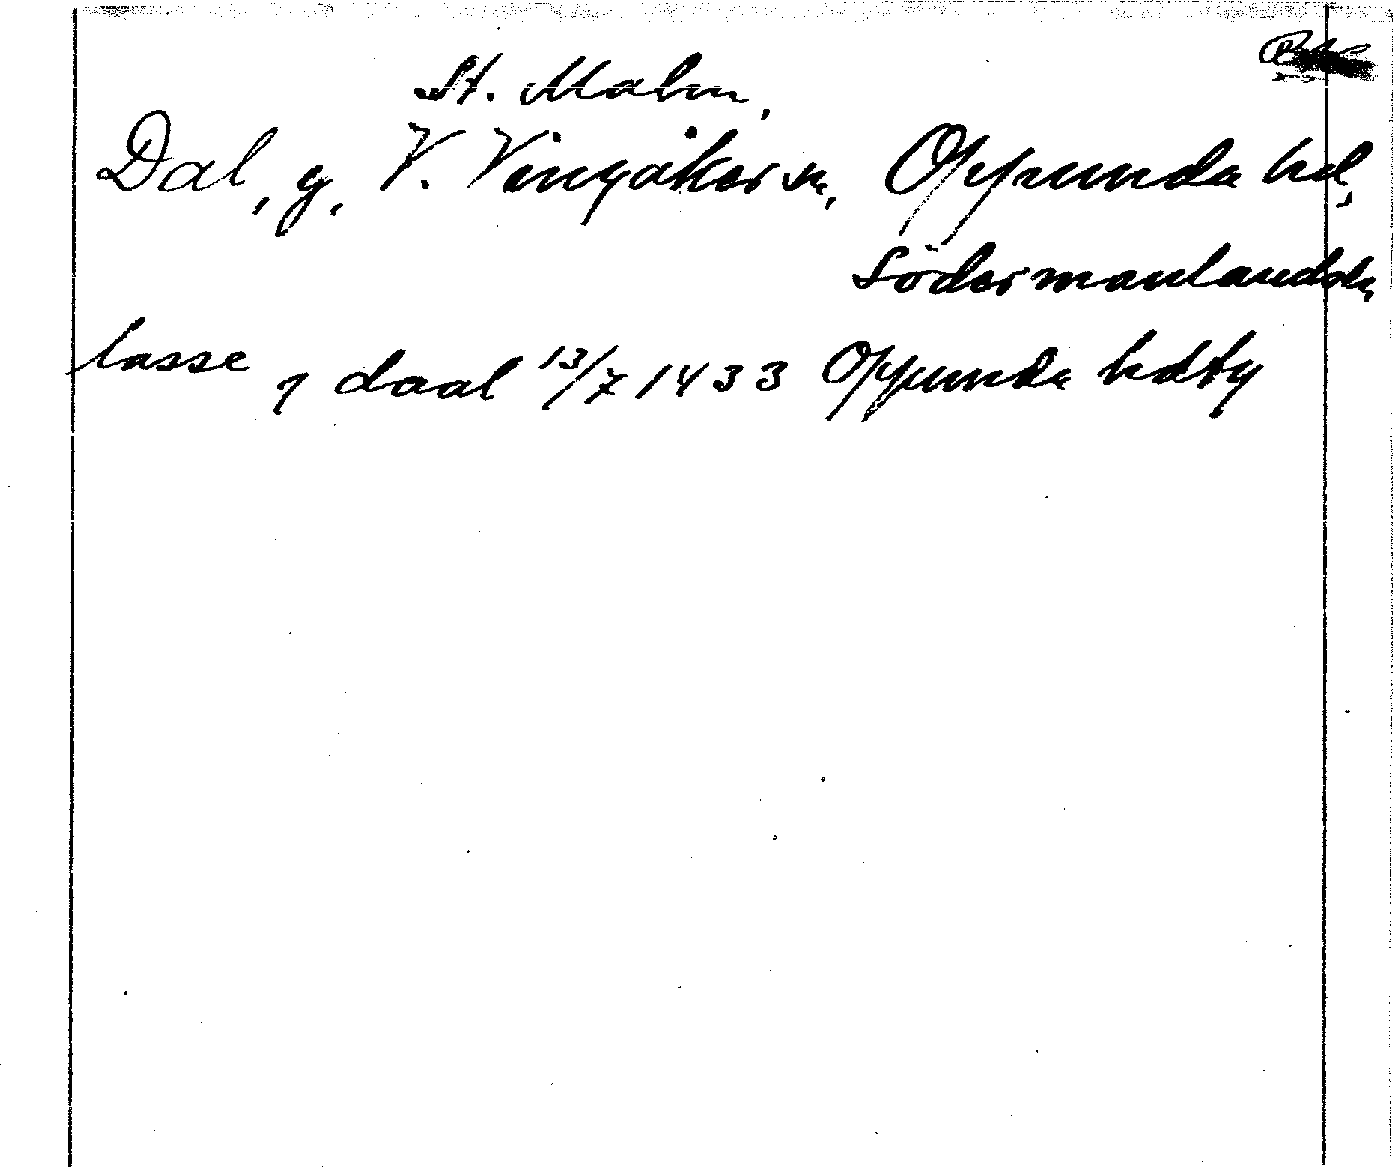 St. Malm,
Dal, g. V. Vingåker sn, Oppunda hd,
Södermanlands
lasse j daal 13/7 1433 Oppunda hdtg